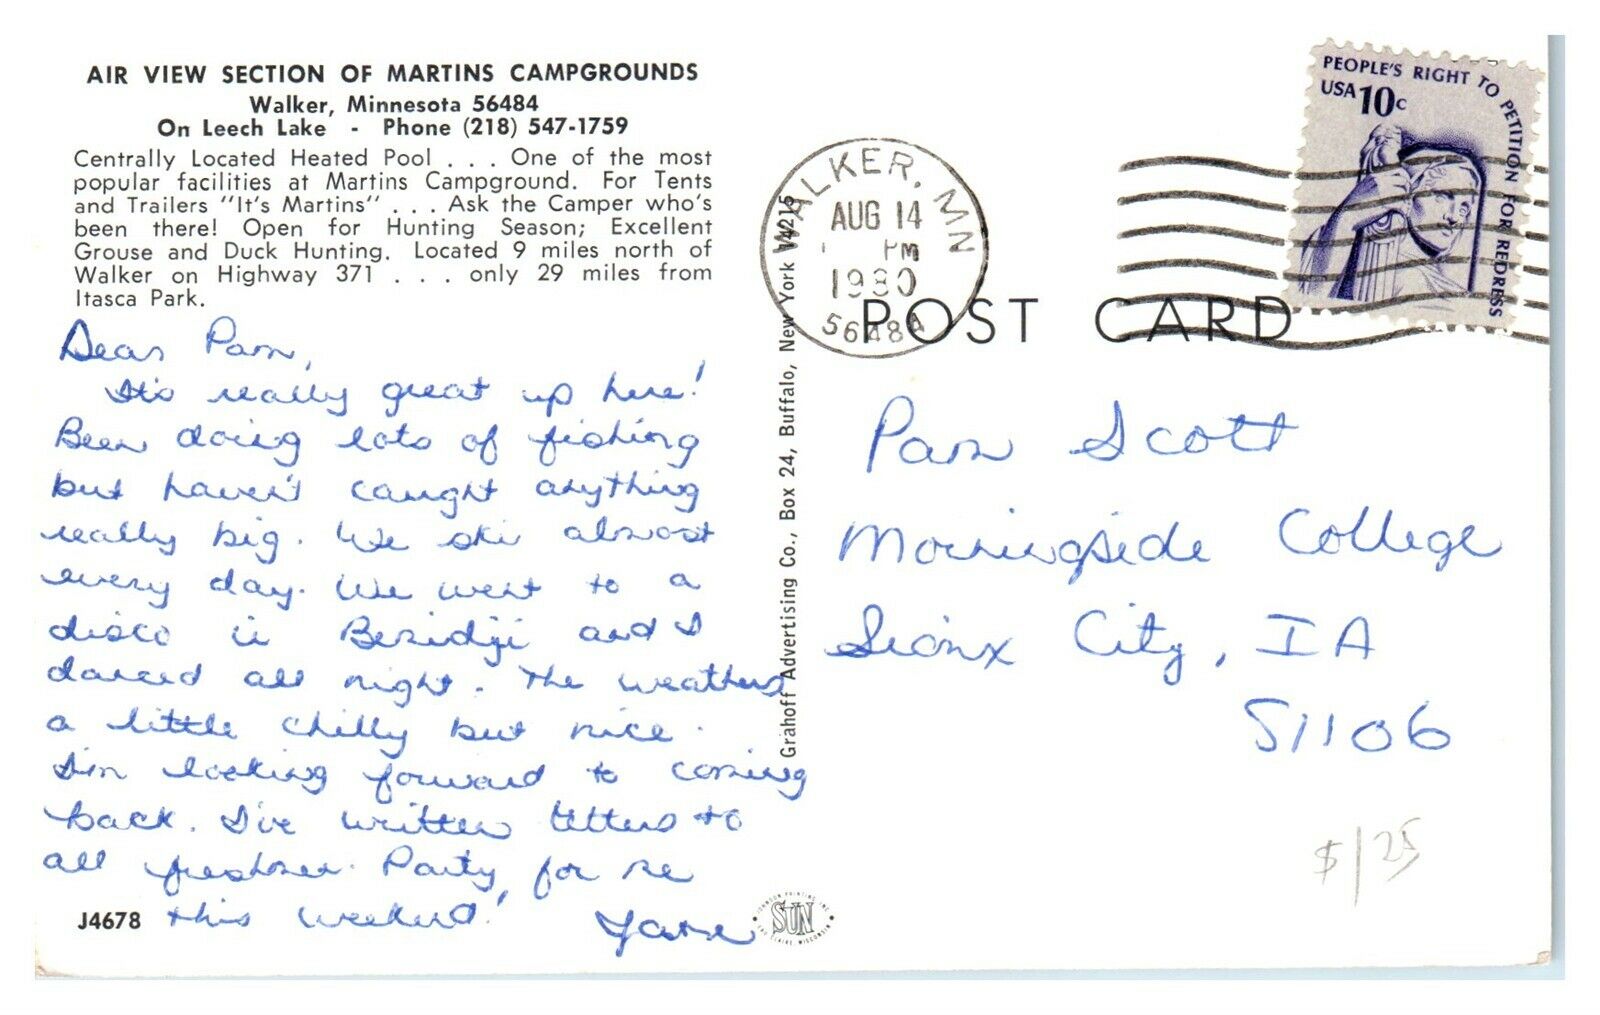 AIR VIEW SECTION OF MARTINS CAMPGROUNDS
Walker, Minnesota 56484
On Leech Lake - Phone (218) 547-1759
Centrally Located Heated Pool . . . One of the most
popular facilities at Martins Campground. For Tents
and Trailers "It's Martins" . . . Ask the Camper who's
been there! Open for Hunting Season; Excellent
Grouse and Duck Hunting. Located 9 miles north of
Walker on Highway 371 . . . only 29 miles from
Itasca Park.
Dear Pam,
It's really great up here!
Been doing lots of fishing
but haven't caught anything
really big. We ski almost
every day. We went to a
disco in Bemidji and I
danced all night. The weathers
a little chilly but nice.
I'm looking forward to coming
back. I've written letters to
all freshmen. Party for me
this weekend!
J4678
Grahoff Advertising Co., Box 24, Buffalo, New York 14215
WALKER, MN
AUG 14
PM
1980
56484
POST CARD
PEOPLE'S RIGHT TO PETITION FOR REDRESS
USA 10c
Pam Scott
Morningside College
Sioux City, IA
51106
$1 25
JOHNSON PRINTING INC.
SUN
EAU CLAIRE, WISCONSIN